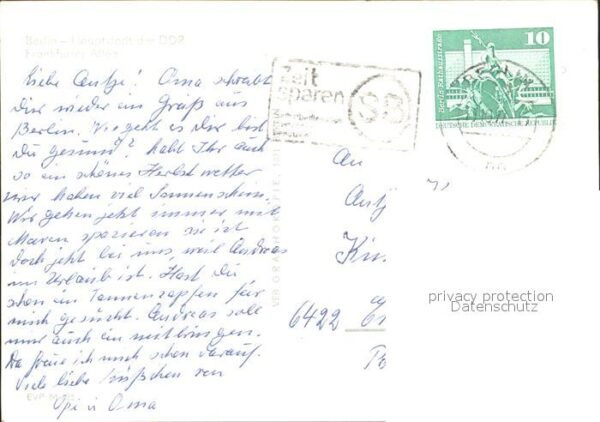 Berlin – Hauptstadt der DDR
Frankfurter Allee
Liebe Antje! Oma schreibt
Dir wieder ein Gruß aus
Berlin. Wie geht es Dir bist
Du gesund? habt Ihr auch
so ein schönes Herbst wetter
wir haben viel Sonnenschein.
Wir gehen jetzt immer mit
Maren spazieren sie ist
doch jetzt bei uns, weil Andreas
im Urlaub ist. Hast Du
schon ein Tannenzapfen für
mich gesucht. Andreas soll
mir auch ein mitbringen.
Da freue ich mich schon darauf.
Viele liebe Grüßchen von
Opi u Oma
EVP
Zeit
sparen
SB
10
Berlin, Rathausstraße
DEUTSCHE DEMOKRATISCHE REPUBLIK
An
Antj
6422
privacy protection
Datenschutz